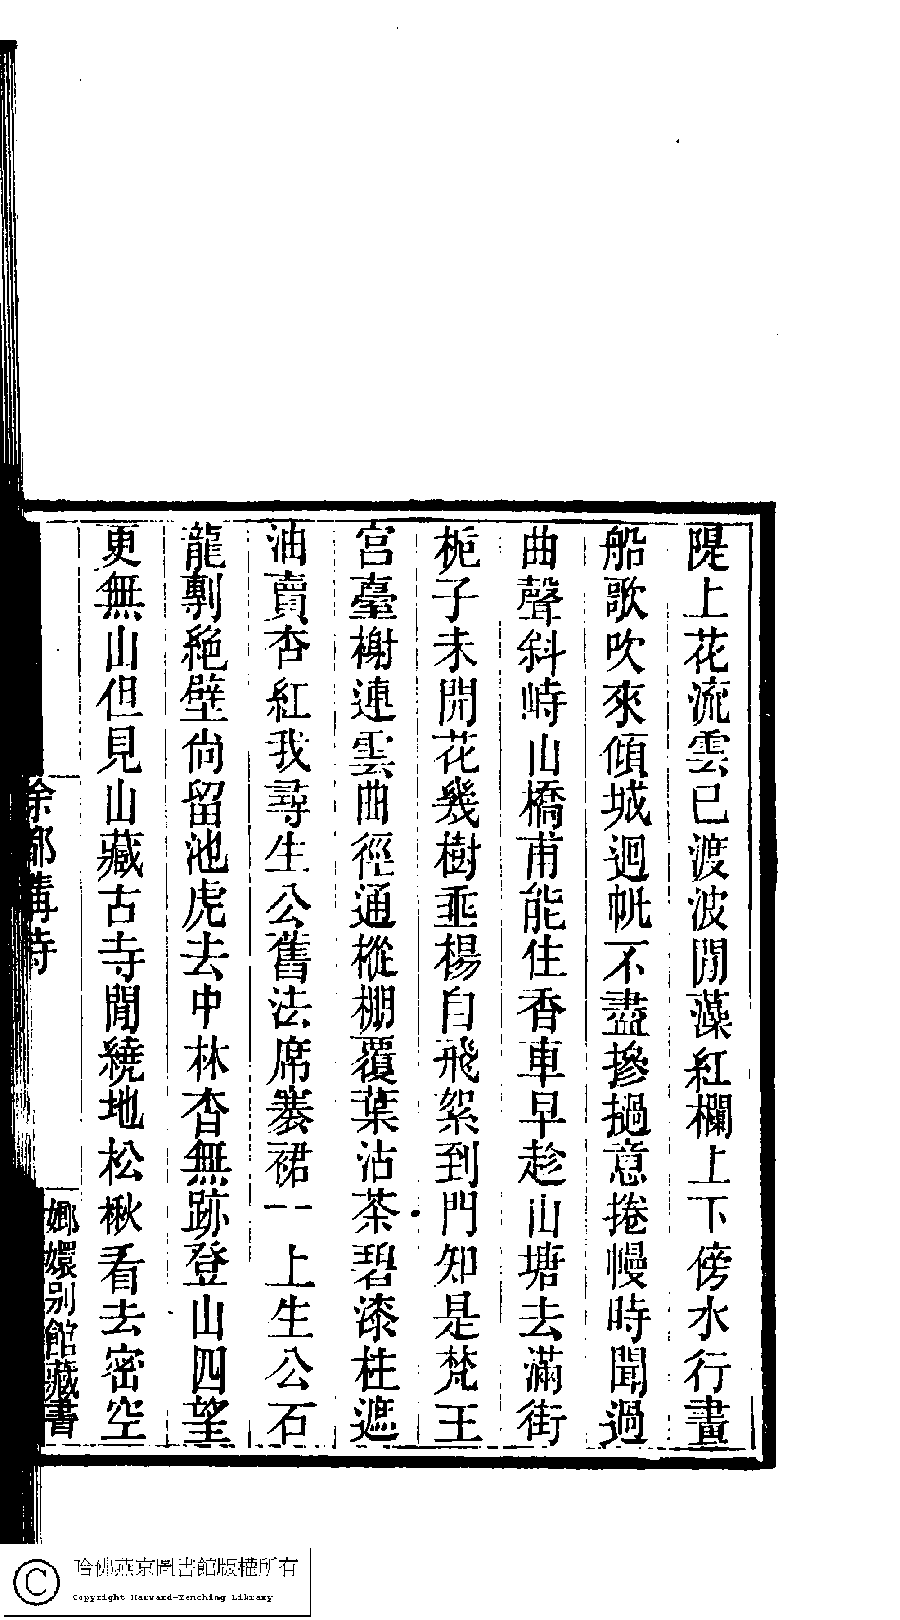 隄上花流雲已渡波閒藻紅欄上下傍水行畫
船歌吹來傾城迴帆不盡摻撾意捲幔時聞過
曲聲斜峙山橋甫能住香車早趁山塘去滿街
栀子未開花幾樹垂楊白飛絮到門知是梵王
宮臺榭連雲曲徑通樅棚覆葉沽茶碧漆柱遮
油賣杏紅我尋生公舊法席褰裙一上生公石
龍剸絶壁尙留池虎去中林杳無跡登山四望
更無山但見山藏古寺閒繞地松楸看去密空
嫏嬛別館藏書
哈佛燕京圖書館版權所有
Copyright Harvard-Yenching Library